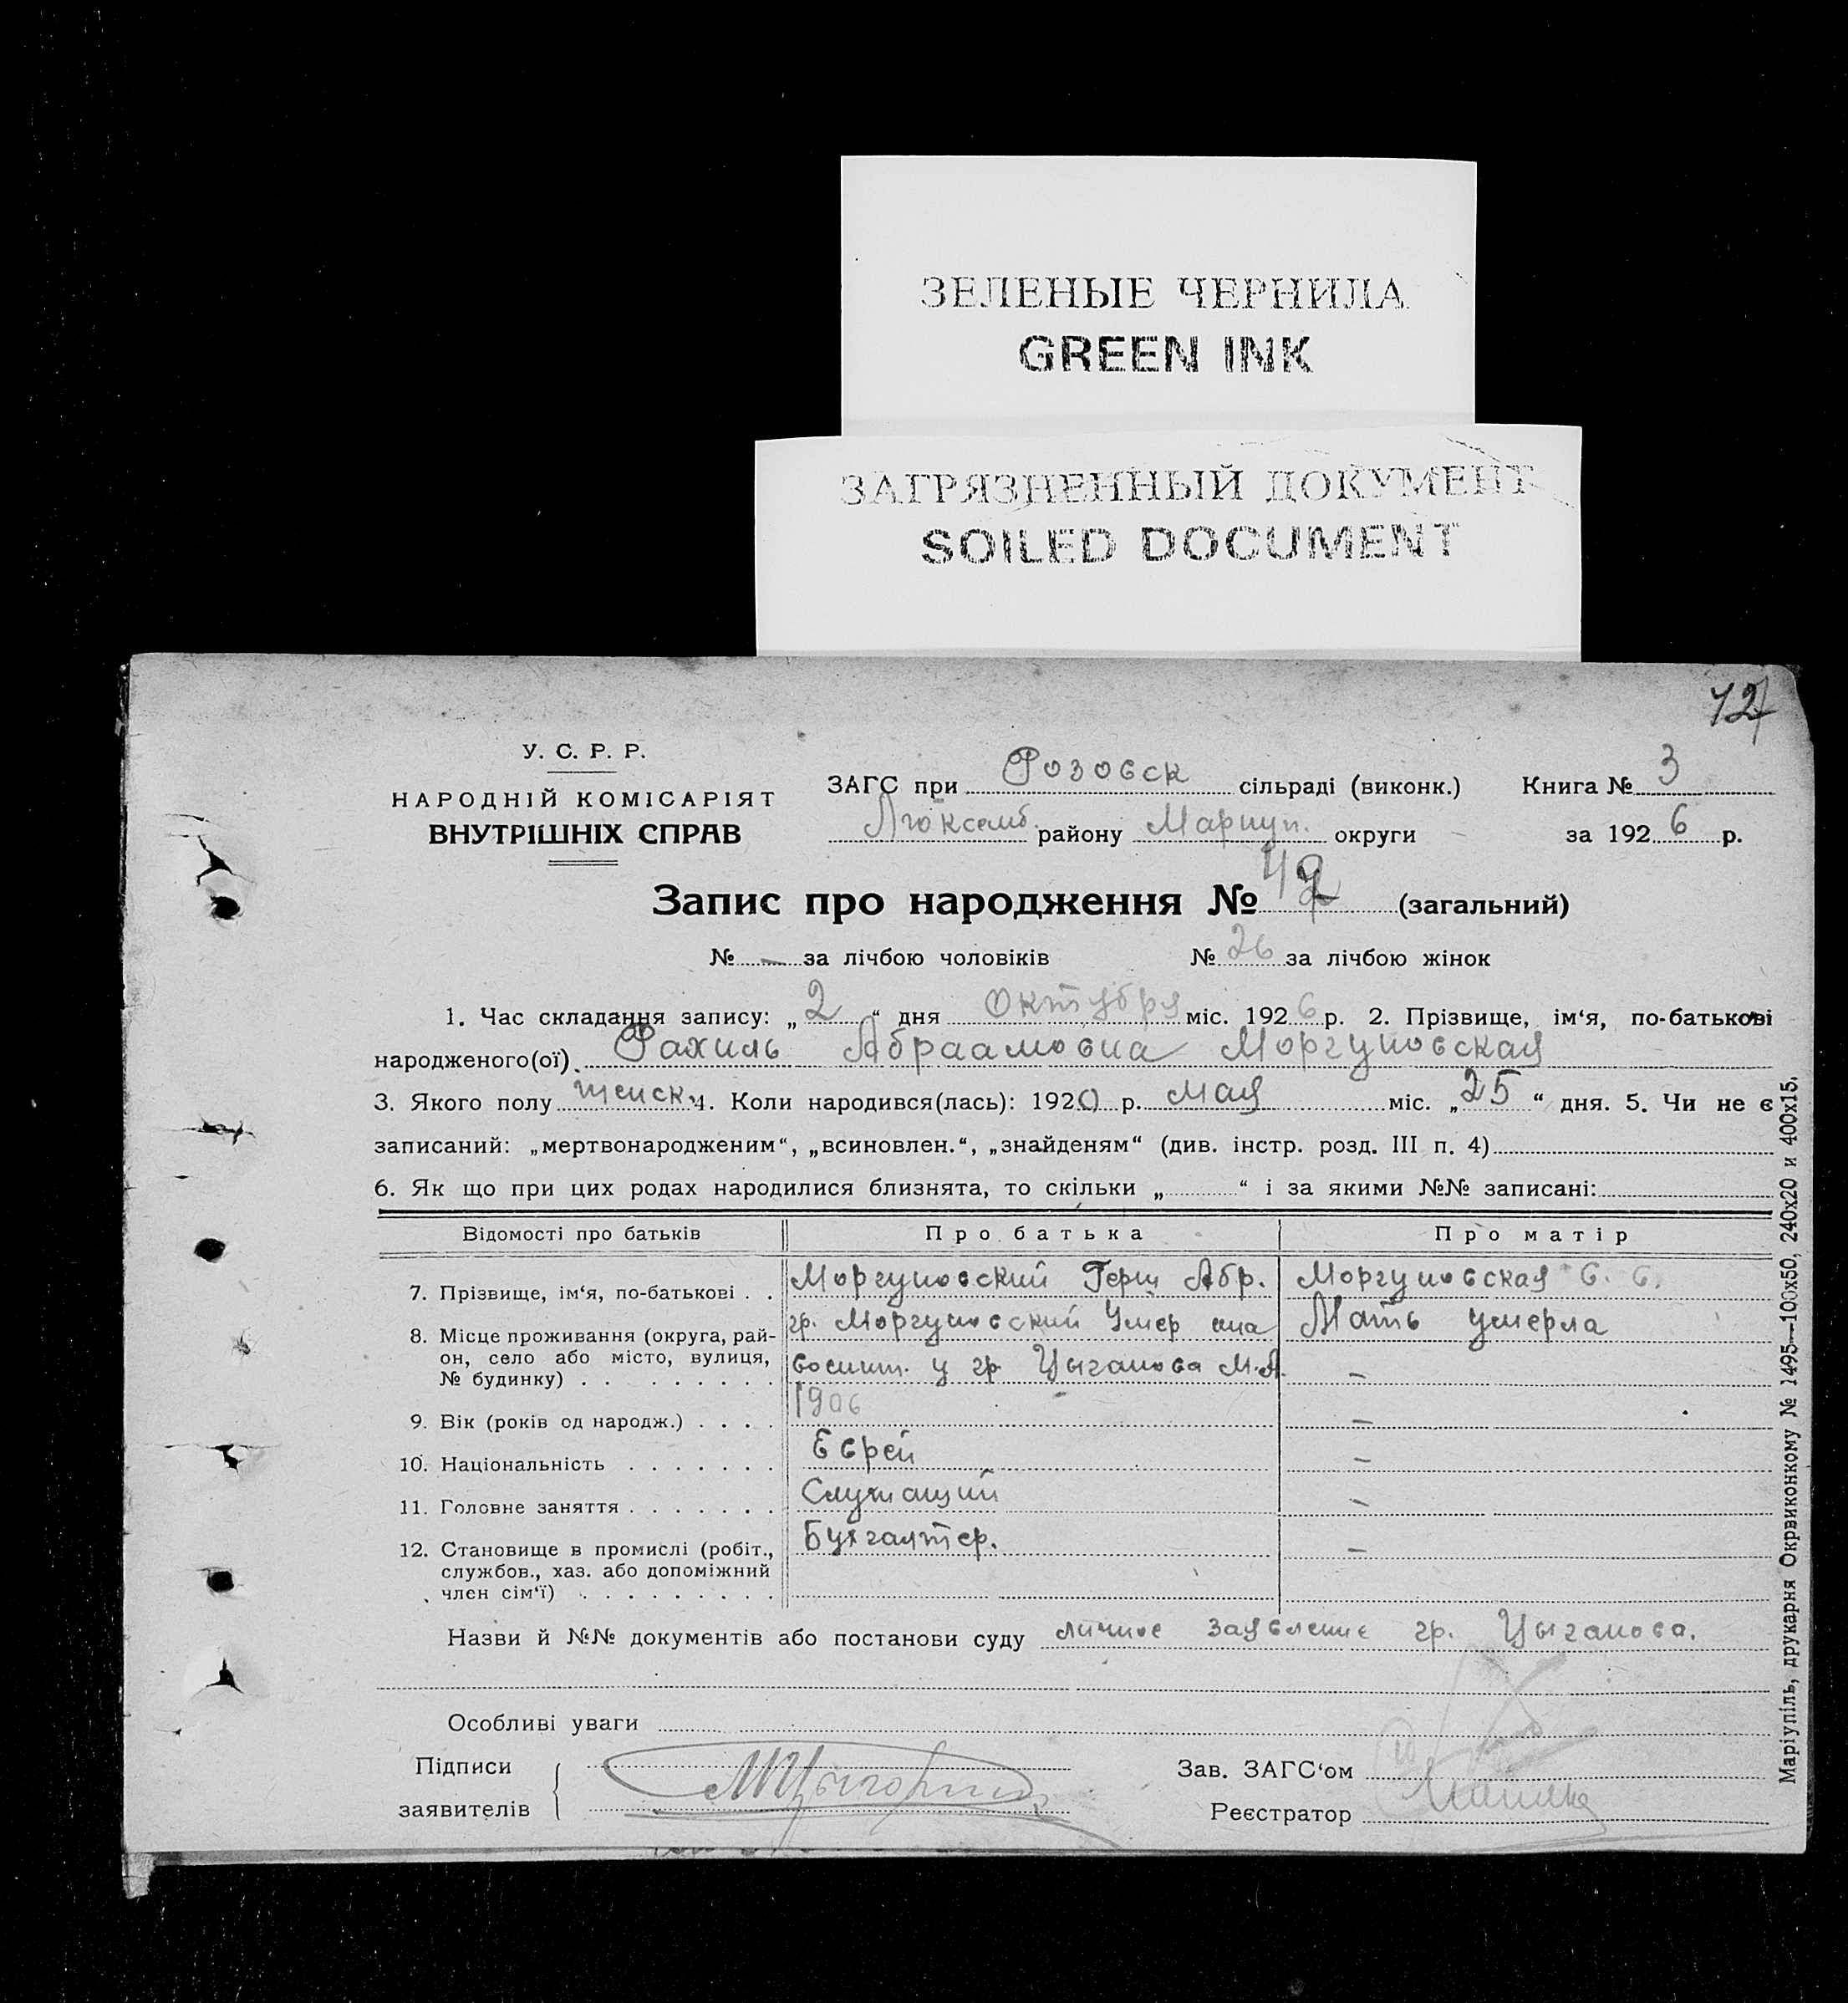 ЗЕЛЕНЫЕ ЧЕРНИЛА
GREEN INK
ЗАГРЯЗНЕННЫЙ ДОКУМЕНТ
SOILED DOCUMENT
У. С. Р. Р.
НАРОДНІЙ КОМІСАРІЯТ
ВНУТРІШНІХ СПРАВ
ЗАГС при Розовск сільраді (виконк.) Книга № 3
Люксемб. району Мариуп. округи за 1926 р.
Запис про народження № (загальний)
№ — за лічбою чоловіків № 26 за лічбою жінок
1. Час складання запису: „2“ дня Октября міс. 1926 р. 2. Прізвище, ім‘я, по-батькові
народженого(ої) Рахиль Абраамовна Моргуновская
3. Якого полу женск. 4. Коли народився(лась): 1920 р. мая міс. „25“ дня. 5. Чи не є
записаний: „мертвонародженим“, „всиновлен.“, „знайденям“ (див. інстр. розд. III п. 4)
6. Як що при цих родах народилися близнята, то скільки „ “ і за якими №№ записані:
Відомості про батьків Про батька Про матір
7. Прізвище, ім‘я, по-батькові . . Моргуновский Герш Абр. Моргуновская
8. Місце проживання (округа, рай- гр. Моргуновский Умер она Мать умерла
он, село або місто, вулиця, воспит. у гр. Цыганова М.А —
№ будинку) . . . . . . . . .
9. Вік (років од народж.) . . . . 1906 —
10. Національність . . . . . . . Еврей —
11. Головне заняття . . . . . . . Служащий —
12. Становище в промислі (робіт., Бухгалтер. —
службов., хаз. або допоміжний
член сім‘ї) . . . . . . . . .
Назви й №№ документів або постанови суду личное заявление гр. Цыганова.
Особливі уваги
Підписи
заявителів
Зав. ЗАГС‘ом
Реєстратор
Маріупіль, друкарня Окрвиконкому № 1495—100х50, 240х20 и 400х15.